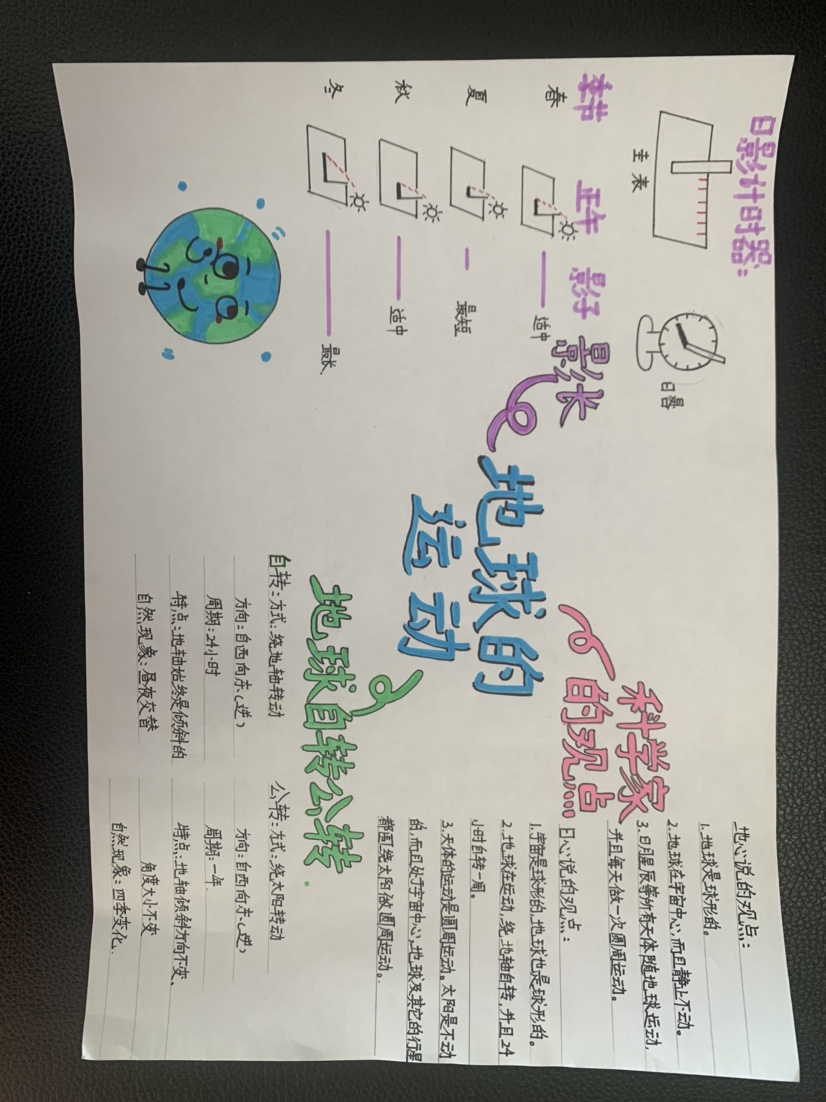 日影计时器:
圭表
日晷
季节 正午 影子
影长
春 适中
夏 最短
秋 适中
冬 最长
地球的
运动
科学家
的观点...
地心说的观点:
1.地球是球形的。
2.地球在宇宙中心,而且静止不动。
3.日月星辰等所有天体随地球运动,
并且每天做一次圆周运动。
日心说的观点:
1.宇宙是球形的,地球也是球形的。
2.地球在运动,绕地轴自转,并且24
小时自转一周。
3.天体的运动是圆周运动。太阳是不动
的,而且处于宇宙中心,地球及其它的行星
都围绕太阳做圆周运动。
地球自转公转
自转:方式:绕地轴转动
方向:自西向东(逆)
周期:24小时
特点:地轴始终是倾斜的
自然现象:昼夜交替
公转:方式:绕太阳转动
方向:自西向东(逆)
周期:一年
特点:地轴倾斜方向不变、
角度大小不变
自然现象:四季变化.